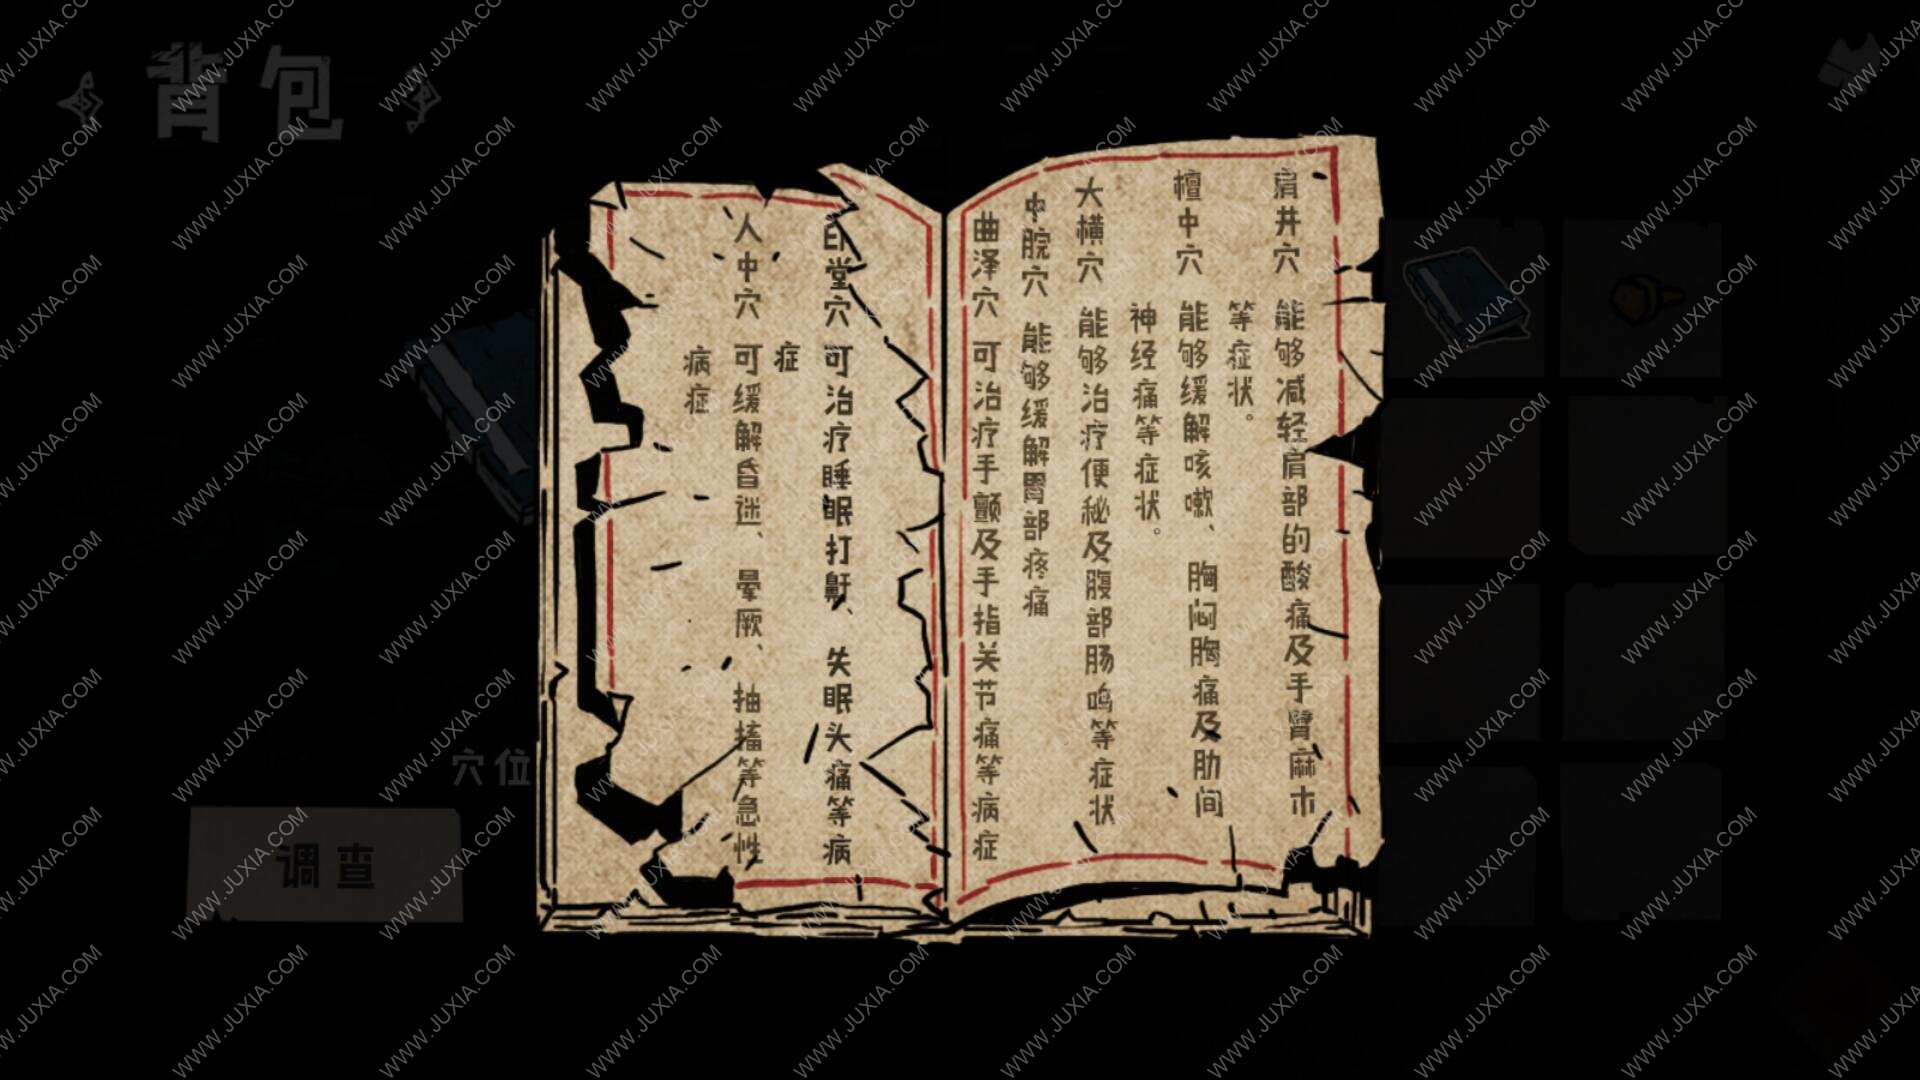 背包
肩井穴 能够减轻肩部的酸痛及手臂麻木
等症状。
檀中穴 能够缓解咳嗽、胸闷胸痛及肋间
神经痛等症状。
大横穴 能够治疗便秘及腹部肠鸣等症状
中脘穴 能够缓解胃部疼痛
曲泽穴 可治疗手颤及手指关节痛等病症
印堂穴 可治疗睡眠打鼾、失眠头痛等病
症
人中穴 可缓解昏迷、晕厥、抽搐等急性
病症
穴位
调查
WWW.JUXIA.COM